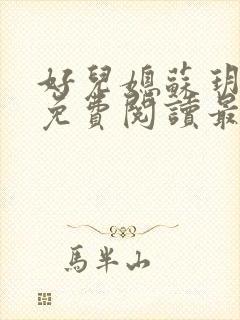 好兒媳蘇玥
免費閱讀最
馬半山